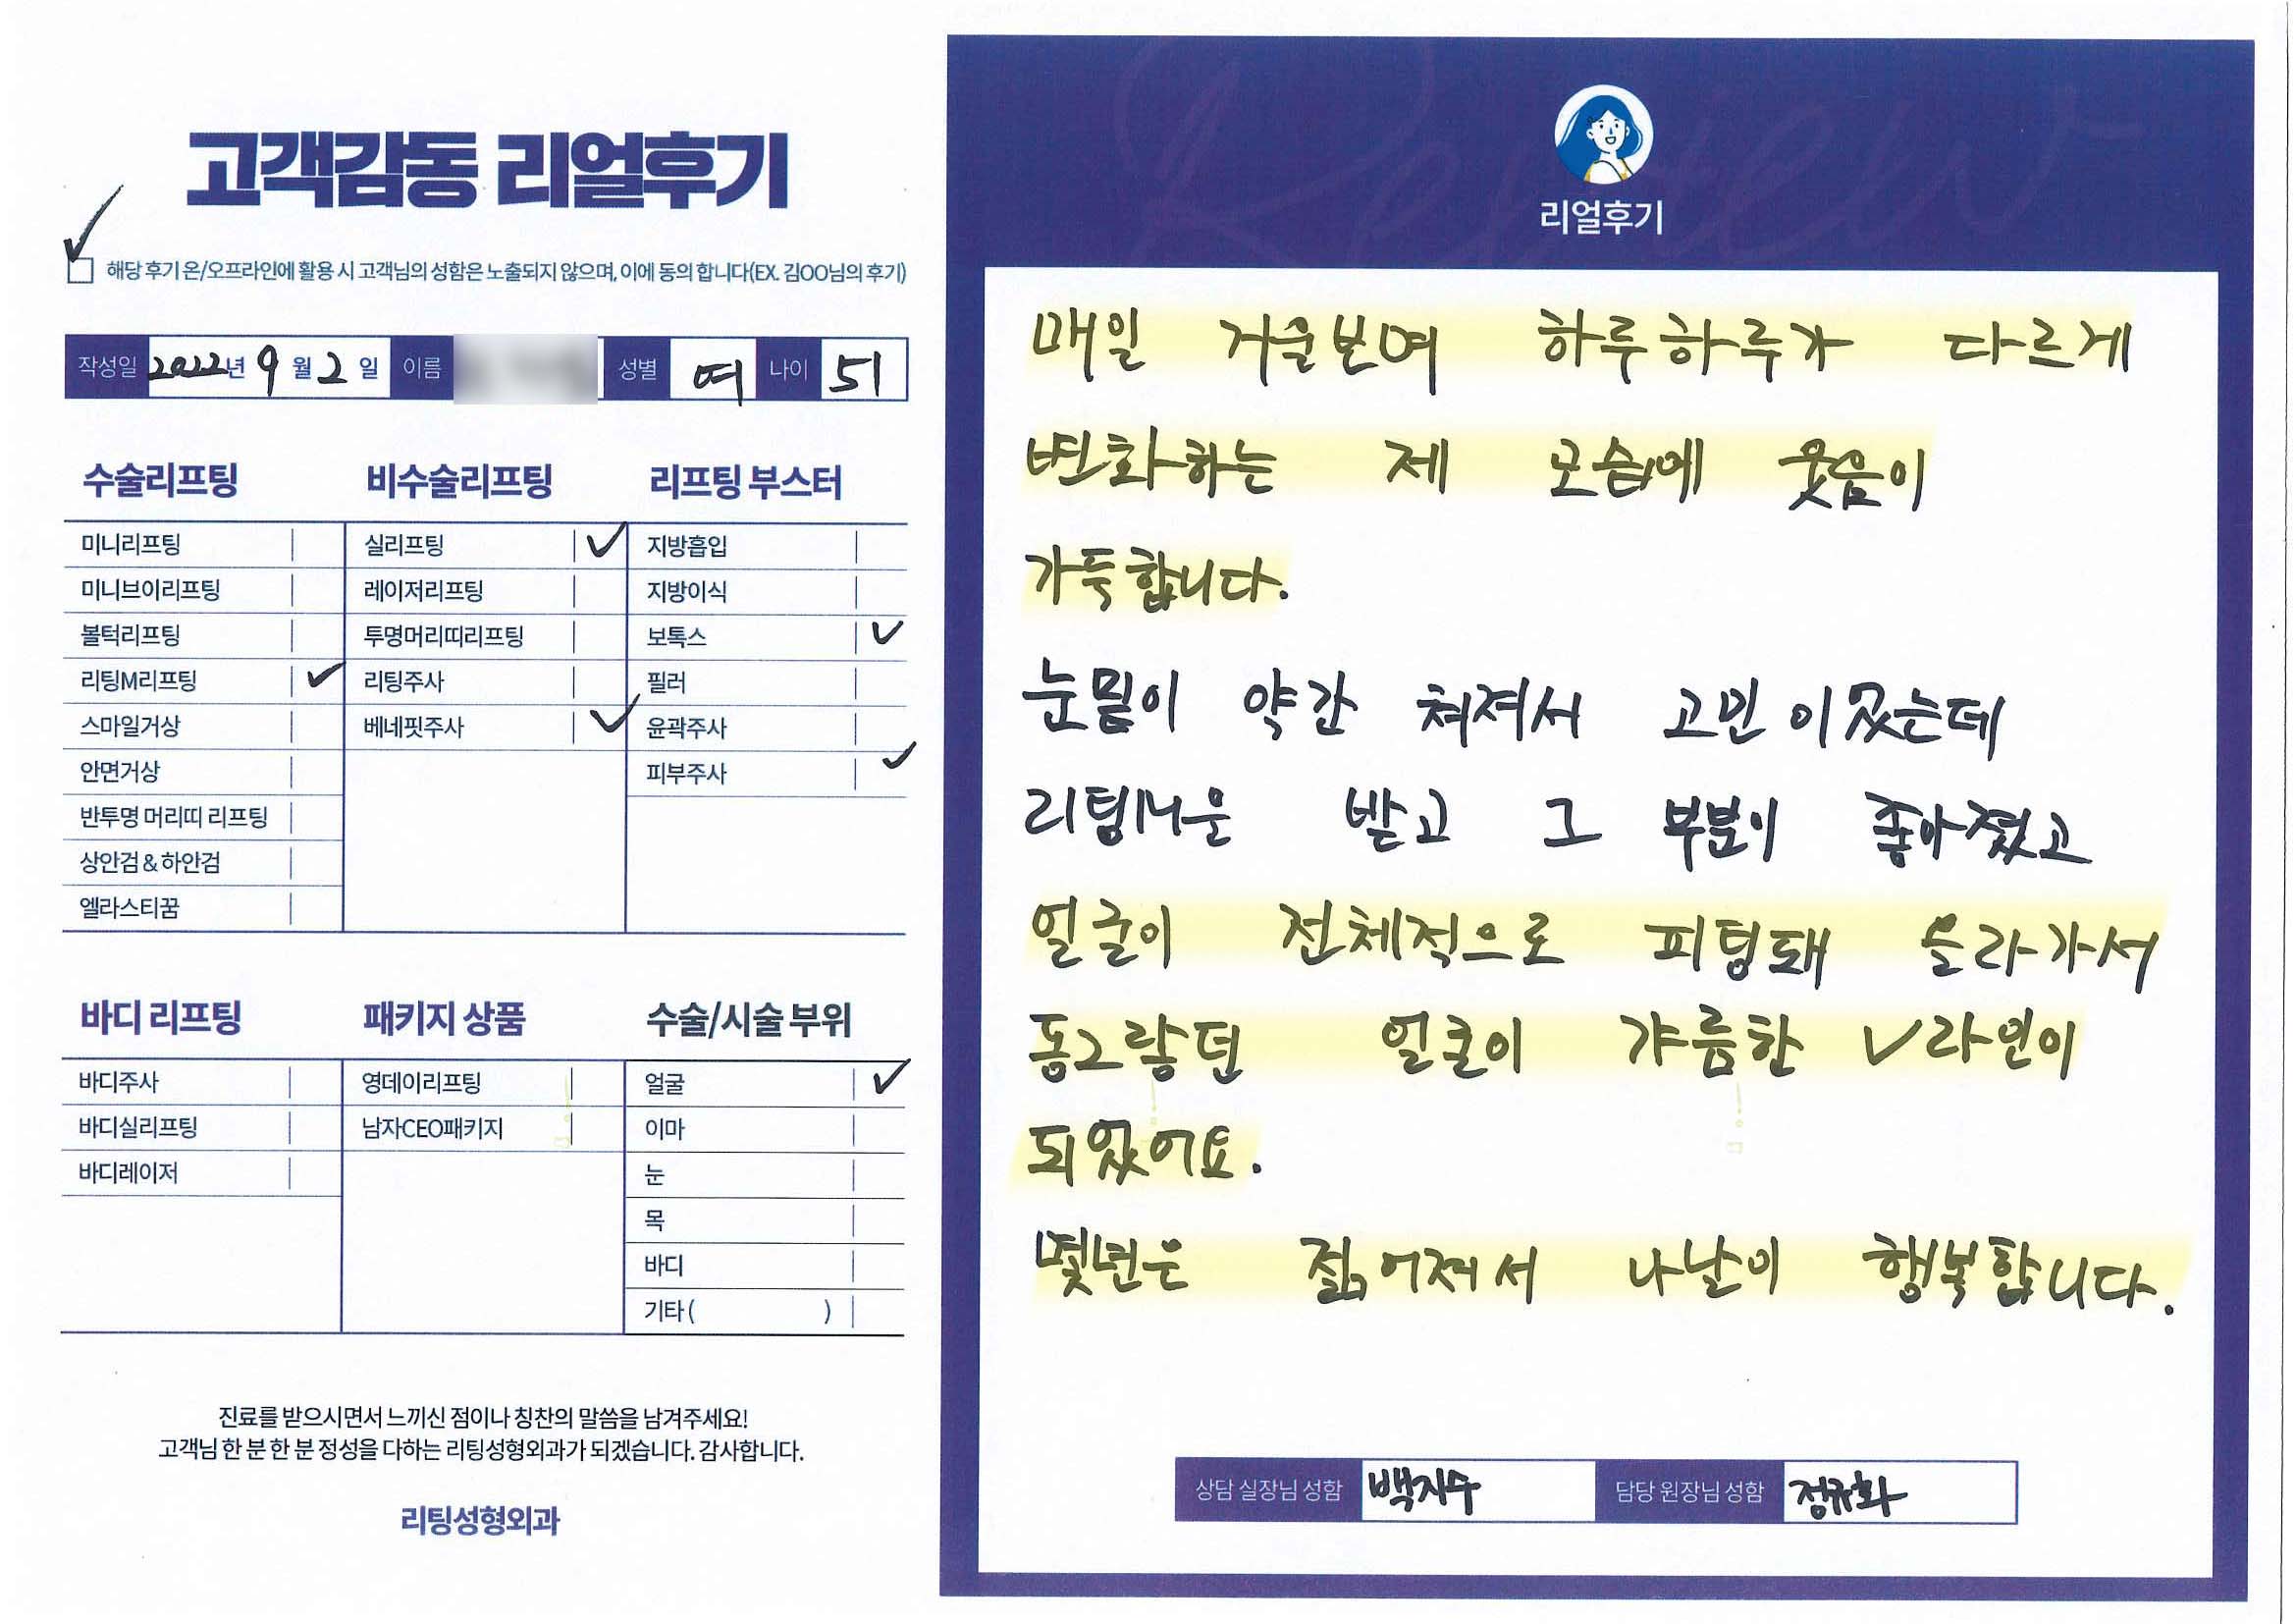 고객감동 리얼후기
해당 후기 온/오프라인에 활용 시 고객님의 성함은 노출되지 않으며, 이에 동의 합니다(EX. 김OO님의 후기)
작성일 2022년 9월 2일 이름 성별 여 나이 51
수술리프팅
미니리프팅
미니브이리프팅
볼턱리프팅
리팅M리프팅
스마일거상
안면거상
반투명 머리띠 리프팅
상안검 & 하안검
엘라스티꿈
비수술리프팅
실리프팅
레이저리프팅
투명머리띠리프팅
리팅주사
베네핏주사
리프팅 부스터
지방흡입
지방이식
보톡스
필러
윤곽주사
피부주사
바디 리프팅
바디주사
바디실리프팅
바디레이저
패키지 상품
영데이리프팅
남자CEO패키지
수술/시술 부위
얼굴
이마
눈
목
바디
기타 ( )
진료를 받으시면서 느끼신 점이나 칭찬의 말씀을 남겨주세요!
고객님 한 분 한 분 정성을 다하는 리팅성형외과가 되겠습니다. 감사합니다.
리팅성형외과
Review
리얼후기
매일 거울보며 하루하루가 다르게
변화하는 제 모습에 웃음이
가득합니다.
눈밑이 약간 쳐져서 고민이였는데
받고 그 부분이 좋아졌고
얼굴이 전체적으로 피팅돼 올라가서
동그랗던 얼굴이 갸름한 V라인이
되었어요.
몇년은 젊어져서 나날이 행복합니다.
상담 실장님 성함 백지수 담당 원장님 성함 정규화